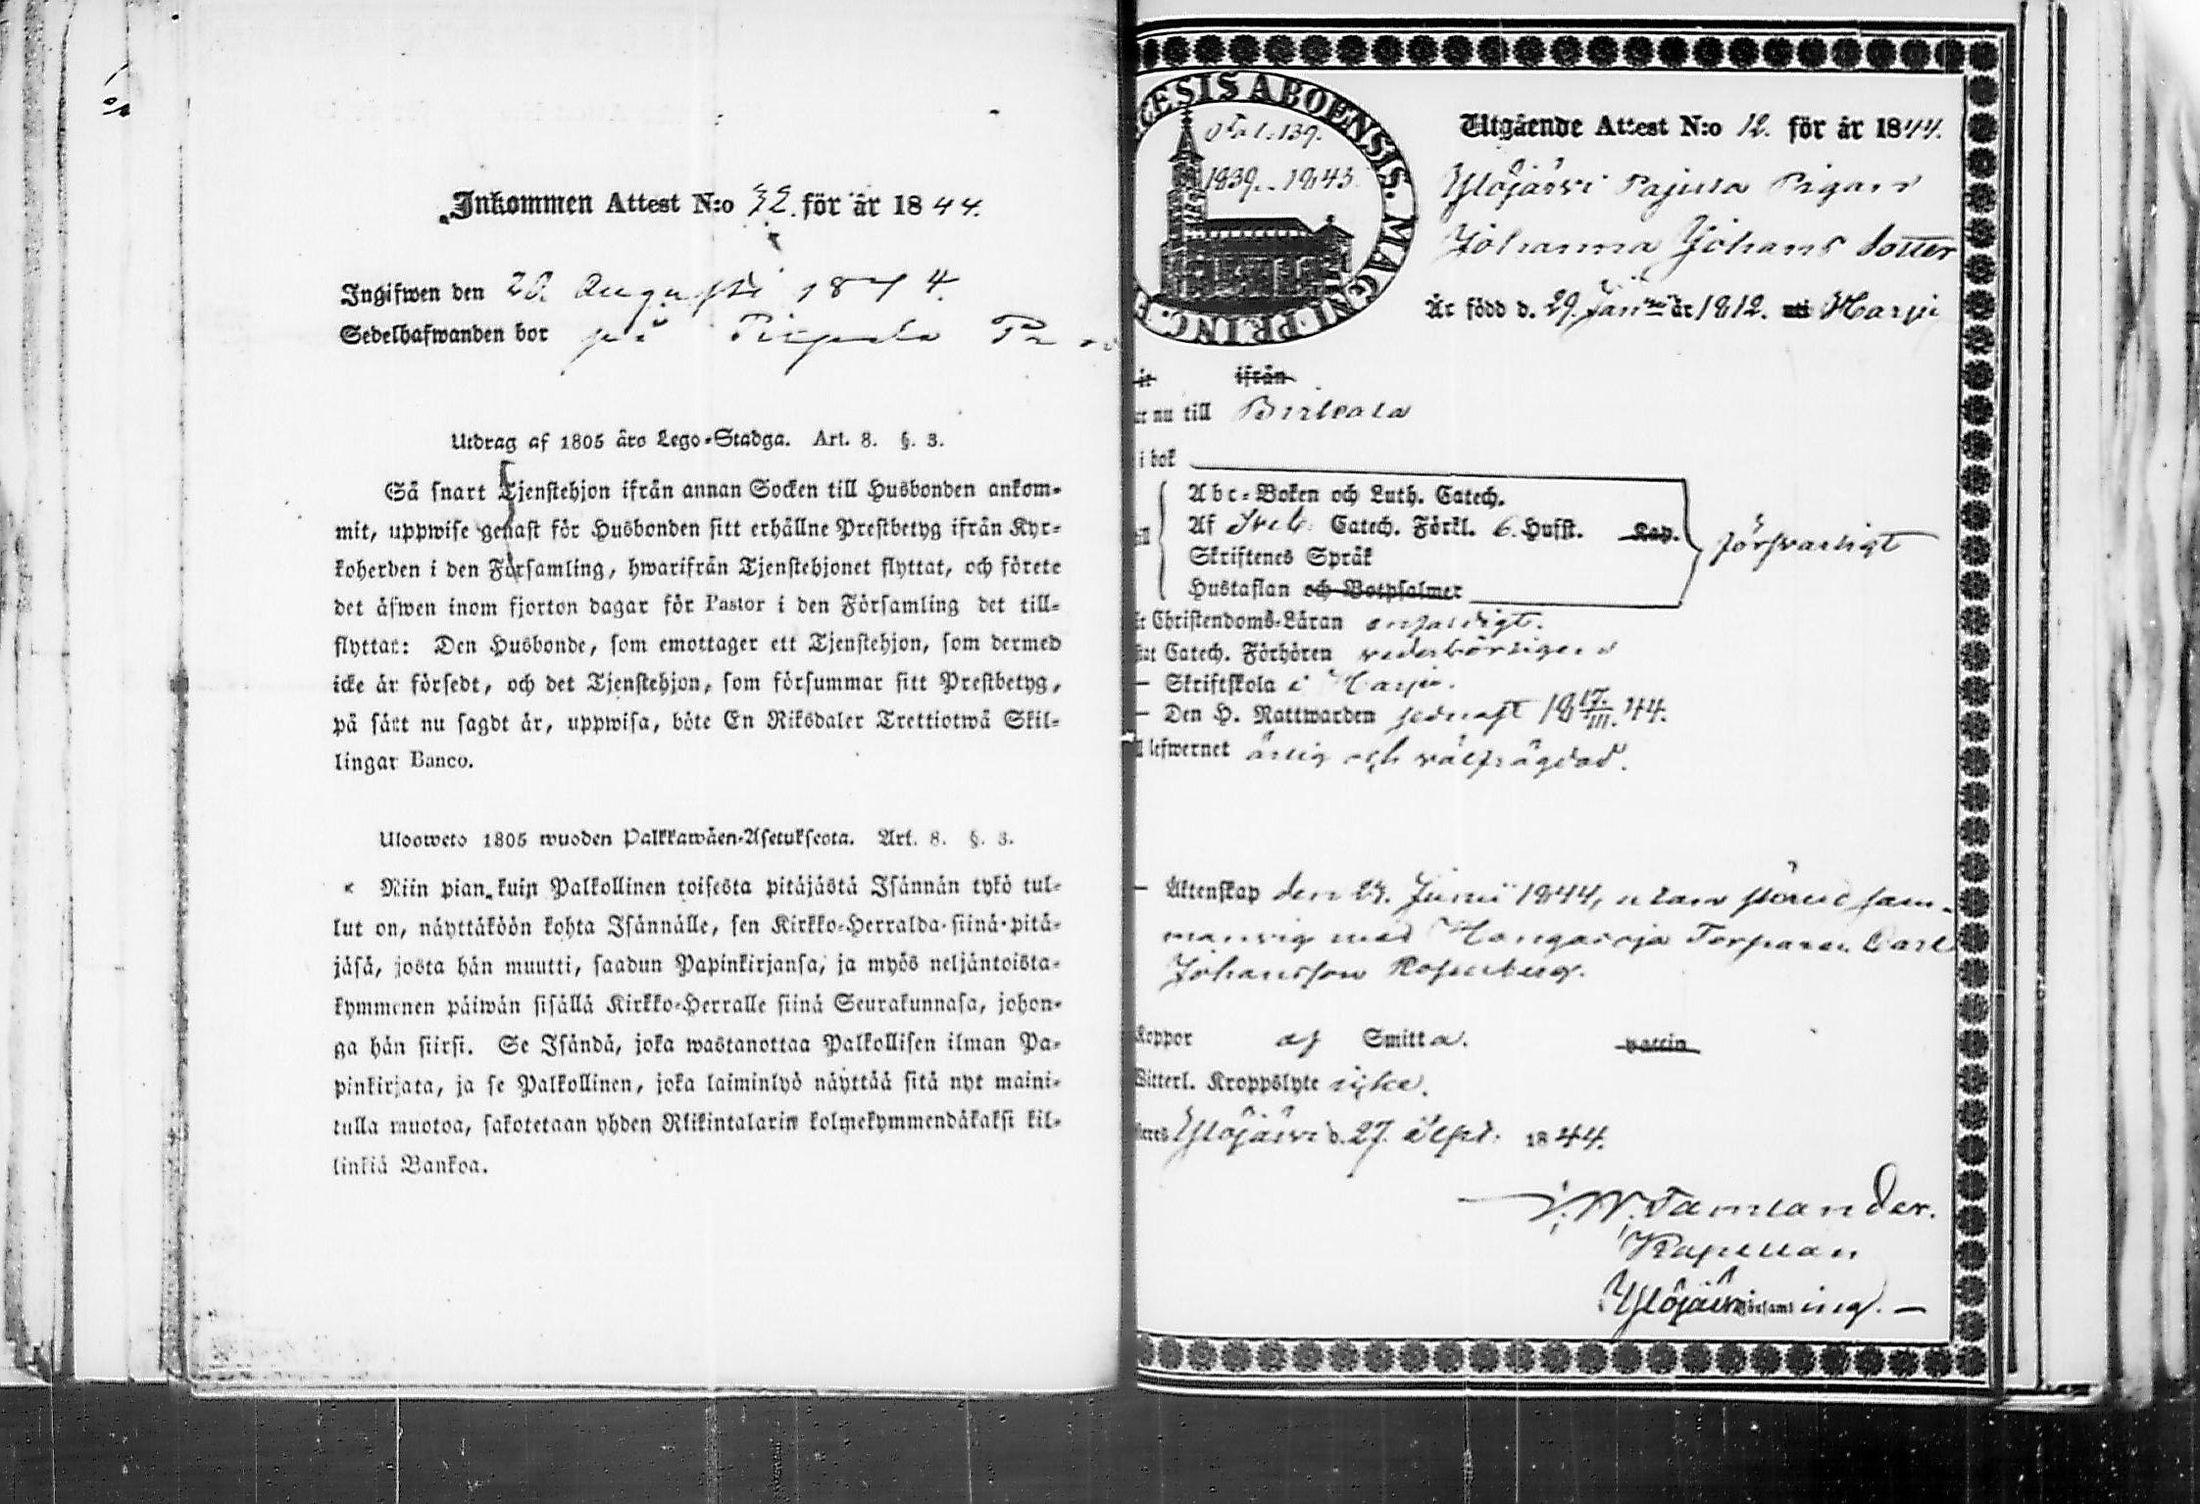 Inkommen Attest N:o 32. för år 1844.
Ingifwen den 20. Augusti 1844.
Sedelhafwanden bor på
Utdrag af 1805 års Lego-Stadga. Art. 8. §. 3.
Så snart Tjenstehjon ifrån annan Socken till Husbonden ankom-
mit, uppwise genast för Husbonden sitt erhållne Prestbetyg ifrån Kyr-
koherden i den Församling, hwarifrån Tjenstehjonet flyttat, och förete
det äfwen inom fjorton dagar för Pastor i den Församling det till-
flyttat: Den Husbonde, som emottager ett Tjenstehjon, som dermed
icke är försedt, och det Tjenstehjon, som försummar sitt Prestbetyg,
på sätt nu sagdt är, uppwisa, böte En Riksdaler Trettiotwå Skil-
lingar Banco.
Ulosweto 1805 wuoden Palkkawäen-Asetuksesta. Art. 8. §. 3.
Niin pian kuin Palkollinen toisesta pitäjästä Isännän tykö tul-
lut on, näyttäköön kohta Isännälle, sen Kirkko-Herralda siinä pitä-
jäsä, josta hän muutti, saadun Papinkirjansa, ja myös neljäntoista-
kymmenen päiwän sisällä Kirkko-Herralle siinä Seurakunnasa, johon-
ga hän siirsi. Se Isändä, joka wastanottaa Palkollisen ilman Pa-
pinkirjata, ja se Palkollinen, joka laiminlyö näyttää sitä nyt maini-
tulla muotoa, sakotetaan yhden Rliikintalarin kolmekymmendäkaksi kil-
linkiä Bankoa.
ECESIS ABOENSIS. MAGNI PRINC. F
1.139.
1839–1843.
Utgående Attest N:o 12. för år 1844.
Ylöjärvi Pajula Pigan
Johanna Johans dotter
Är född d. 29. Jan. år 1812. uti Harju
ifrån
nu till Birkala
i bok
Abc-Boken och Luth. Catech.
Af Sveb. Catech. Förkl. 6. Hufst. Kap.
Skriftenes Språk
Hustaflan och Botpsalmer
försvarligt
Christendoms-Läran enfaldigt.
Catech. Förhören vederbörligen
– Skriftskola i Harju.
– Den H. Nattwarden sednast 18 17/III. 44.
lefwernet ärlig och välfrägdad.
– Äktenskap den 24. Junii 1844, utan
med Torparen Carl
Johansson Rosenberg.
Koppor af Smitta. vaccin
Witterl. Kroppslyte icke.
Ylöjärvi d. 27. 1844.
J. W. Tamlander.
Kapellan
Ylöjärvi Församling. –